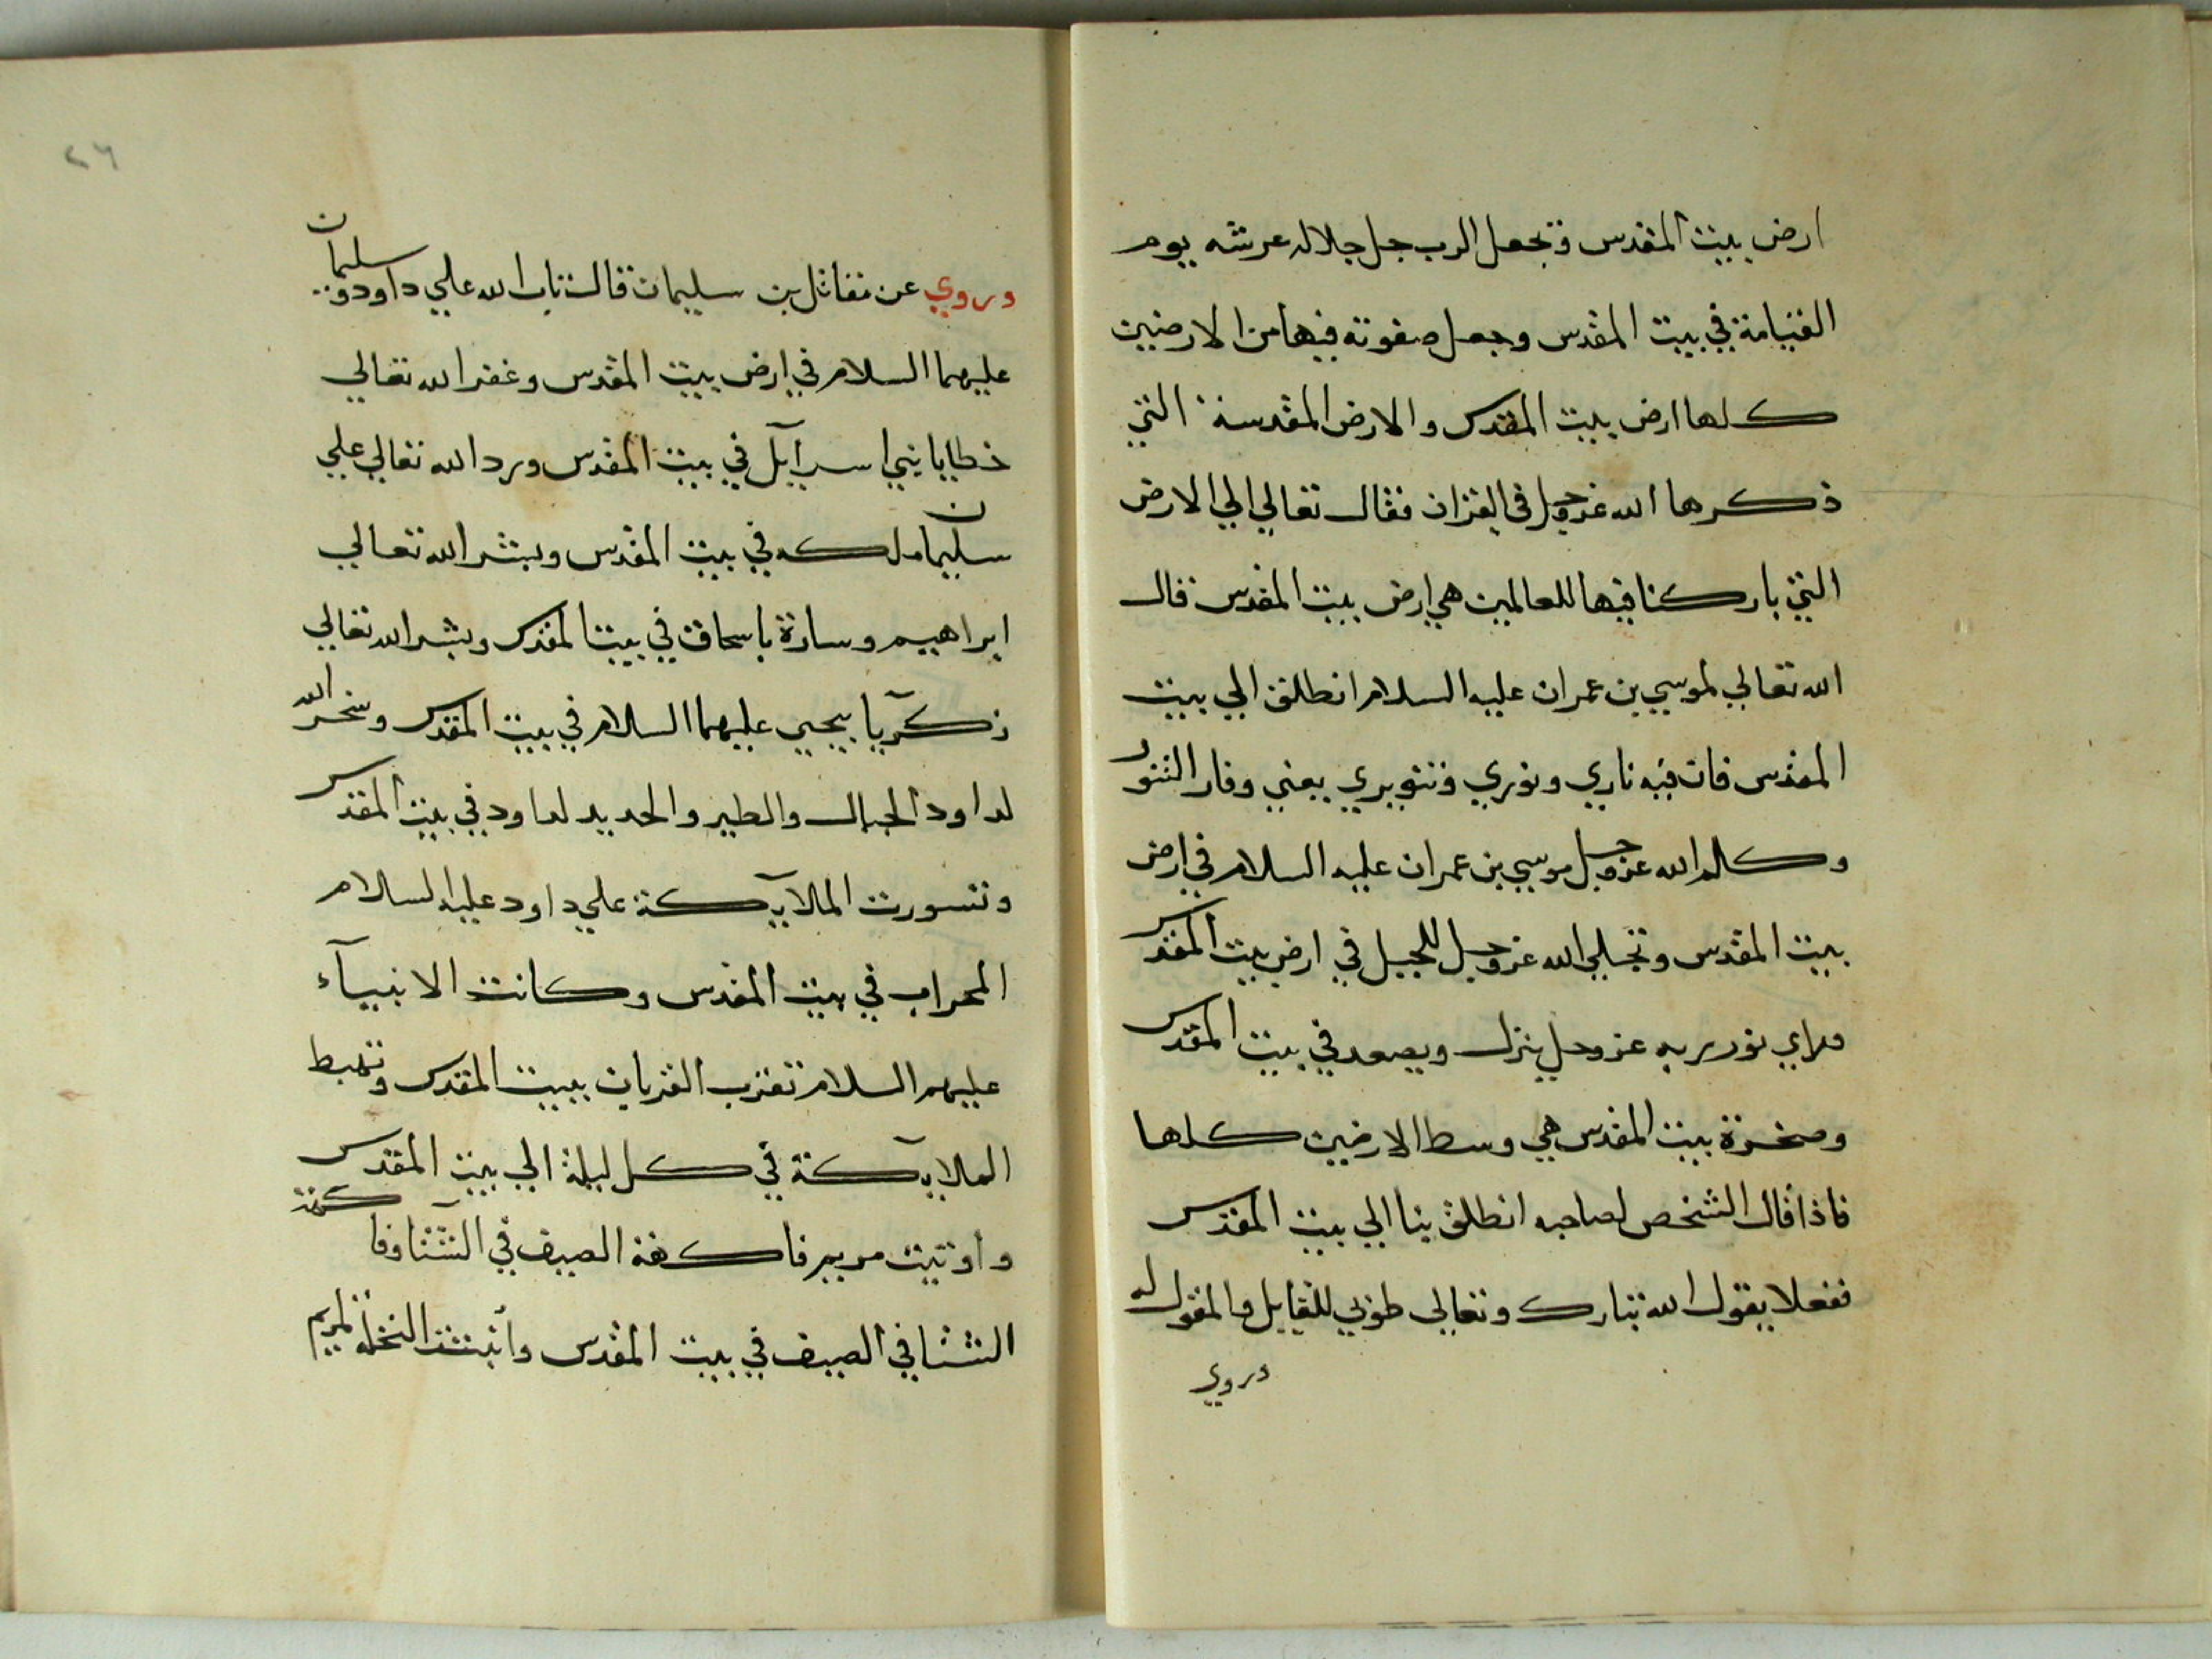 ارض بيت المقدس وتجعل الرب جل جلاله عرشه يوم
القيامة في بيت المقدس وجعل صفوته فيها من الارضين
كلها ارض بيت المقدس والارض المقدسة التي
ذكرها الله عز وجل في القران فقال تعالي الي الارض
التي باركنا فيها للعالمين هي ارض بيت المقدس قال
الله تعالي لموسي بن عمران عليه السلام انطلق الي بيت
المقدس فان فيه ناري ونوري وتنويري يعني وفار التنور
وكلم الله عز وجل موسي بن عمران عليه السلام في ارض
بيت المقدس وتجلي الله عز وجل للجبل في ارض بيت المقدس
وراي نور ربه عز وجل ينزل ويصعد في بيت المقدس
وصخرة بيت المقدس هي وسط الارضين كلها
فاذا قال الشخص لصاحبه انطلق بنا الي بيت المقدس
ففعلا يقول الله تبارك وتعالي طوبي للقايل والمقول له
وروي
٢٦
وروي عن مقاتل بن سليمان قال تاب الله علي داود وسليمان
عليهما السلام في ارض بيت المقدس وغفر الله تعالي
خطايا بني اسرآيل في بيت المقدس ورد الله تعالي علي
سليمان ملكه في بيت المقدس وبشر الله تعالي
ابراهيم وسارة باسحاق في بيت المقدس وبشر الله تعالي
زكريا بيحيي عليهما السلام في بيت المقدس وسخر الله
لداود الجبال والطير والحديد لداود في بيت المقدس
وتسورت الملايكة علي داود عليه السلام
المحراب في بيت المقدس وكانت الانبيآء
عليهم السلام تقرب القربان ببيت المقدس وتهبط
الملايكة في كل ليلة الي بيت المقدس
واوتيت مريم فاكهة الصيف في الشتا وفاكهة
الشتا في الصيف في بيت المقدس وأنبتت النخلة لمريم